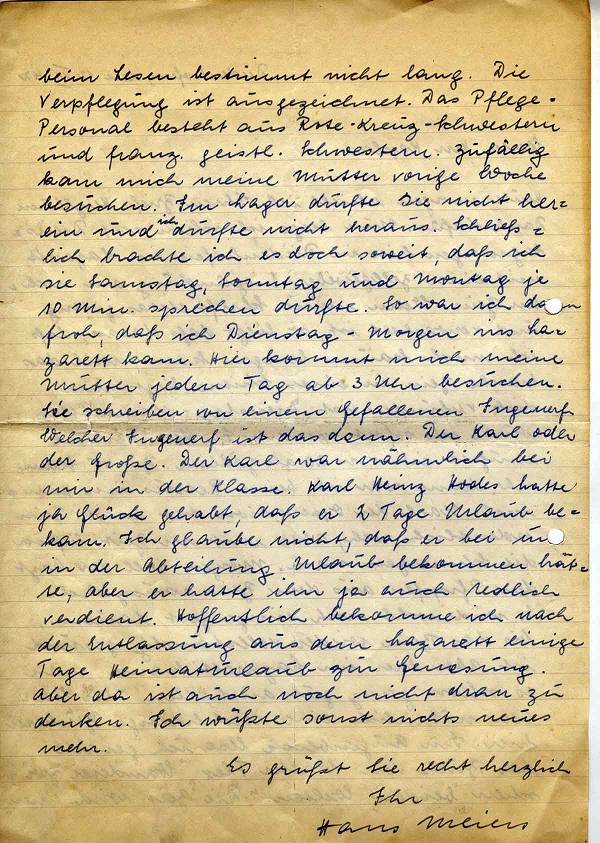 beim Lesen bestimmt nicht lang. Die
Verpflegung ist ausgezeichnet. Das Pflege-
Personal besteht aus Rote-Kreuz-Schwestern
und franz. geistl. Schwestern. Zufällig
kam mich meine Mutter vorige Woche
besuchen. Im Lager durfte sie nicht her=
ein und ich durfte nicht heraus. Schließ=
lich brachte ich es doch soweit, daß ich
sie Samstag, Sonntag und Montag je
10 Min. sprechen durfte. So war ich dann
froh, daß ich Dienstag-Morgen ins La-
zarett kam. Hier kommt mich meine
Mutter jeden Tag ab 3 Uhr besuchen.
Sie schreiben von einem Gefallenen Ingenerf
Welcher Ingenerf ist das denn. Der Karl oder
der Große. Der Karl war nähmlich bei
mir in der Klasse. Karl Heinz Hodes hatte
ja Glück gehabt, daß er 2 Tage Urlaub be=
kam. Ich glaube nicht, daß er bei uns
in der Abteilung Urlaub bekommen hät=
te, aber er hatte ihn ja auch redlich
verdient. Hoffentlich bekomme ich nach
der Entlassung aus dem Lazarett einige
Tage Heimaturlaub zur Genesung.
Aber da ist auch noch nicht dran zu
denken. Ich wüßte sonst nichts neues
mehr.
Es grüßt Sie recht herzlich
Ihr
Hans Meiers